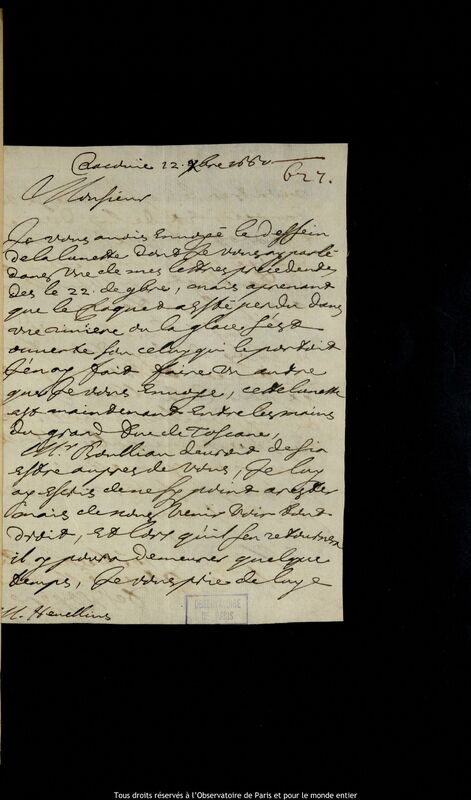 Cracovie 12. Xbre 1660
627.
Monsieur
Je vous avois Envoyé le dessein
de la lunette dont Je vous ay parlé
dans une de mes lettres precedentes
des le 22. de 9bre, mais aprenant
que le Paquet a esté perdu dans
une riviere ou la glace s'est
ouverte sur celuy qui le portoit
J'en ay fait faire un autre
que Je vous Envoye, cette lunette
est maintenant Entre les mains
du grand Duc de Toscane,
Mr. Boulliau devroit desja
estre aupres de vous, Je luy
ay escris de ne s'y point arester
mais de nous venir voir tout
droit, Et lors qu'il s'en retournera
il y poura demeurer quelque
temps, Je vous prie de luy
M. Hevellius
OBSERVATOIRE
DE PARIS
Tous droits réservés à l'Observatoire de Paris et pour le monde entier